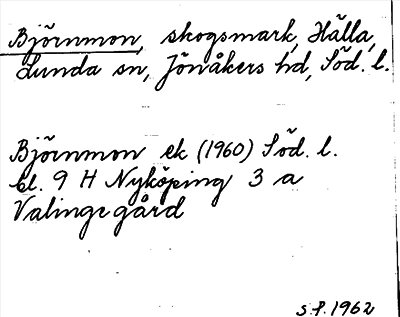 Björnmon, skogsmark, Hälla,
Lunda sn, Jönåkers hd, Söd. l.
Björnmon ek (1960) Söd. l.
bl. 9 H Nyköping 3 a
Valinge gård
s.f. 1962